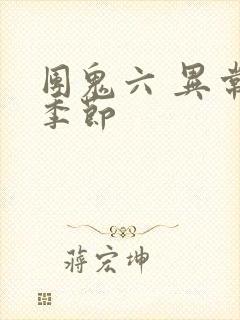 団鬼六 異常
季節
蒋宏坤